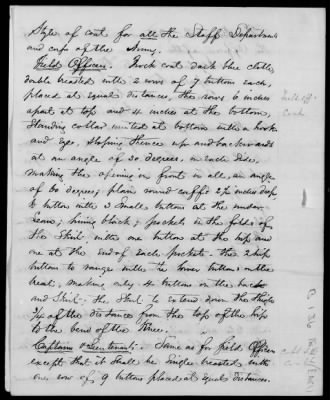 Style of coat for all the Staff Departments
and cups of the Army.
Field Officers. Frock coat dark blue cloth,
double breasted with 2 rows of 7 buttons each,
placed at equal distances, the rows 6 inches
apart at top and 4 inches at the bottom,
Standing collar united at bottom with a hook
and eye, sloping thence up and backwards
at an angle of 30 degrees, in each side,
making the opening in front in all, an angle
of 60 degrees; plain round cuffs 2½ inches deep,
to button with 3 small buttons at the under
seam; lining black; pockets in the folds of
the skirt with one button at the hip and
one at the end of each pocket. the 2 hip
buttons to range with the lower buttons on the
breast; making only 4 buttons on the back
and skirt. the skirt to extend down the thigh
¾ of the distance from the top of the hip
to the bend of the Knee.
Captains & Lieutenants. Same as for field Officers
except that it shall be single breasted with
one row of 9 buttons placed at equal distances.